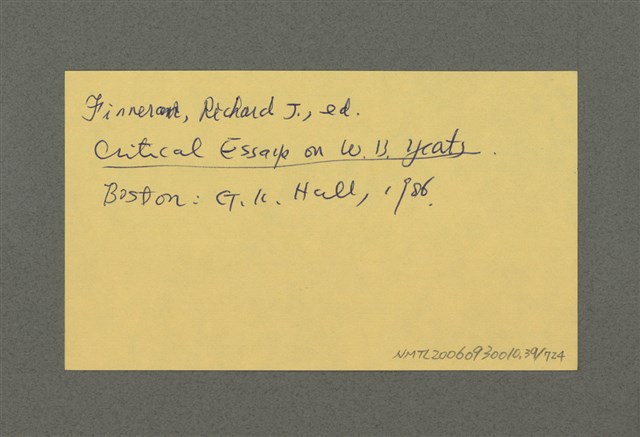 Finneran, Richard J., ed.
Critical Essays on W. B. Yeats.
Boston: G. K. Hall, 1986.
NMTL20060930010.39/724